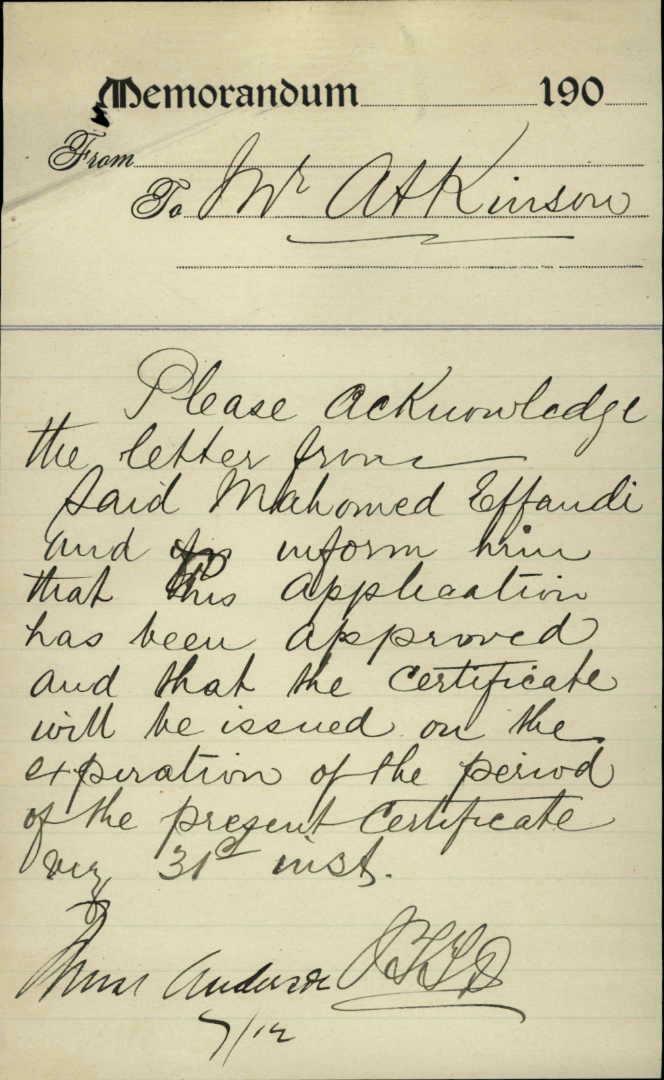 Memorandum 190
From
To Mr Atkinson
Please acknowledge
the letter from
Said Mahomed Effandi
and inform him
that his application
has been approved
and that the certificate
will be issued on the
expiration of the period
of the present certificate
viz 31st inst.
7/12